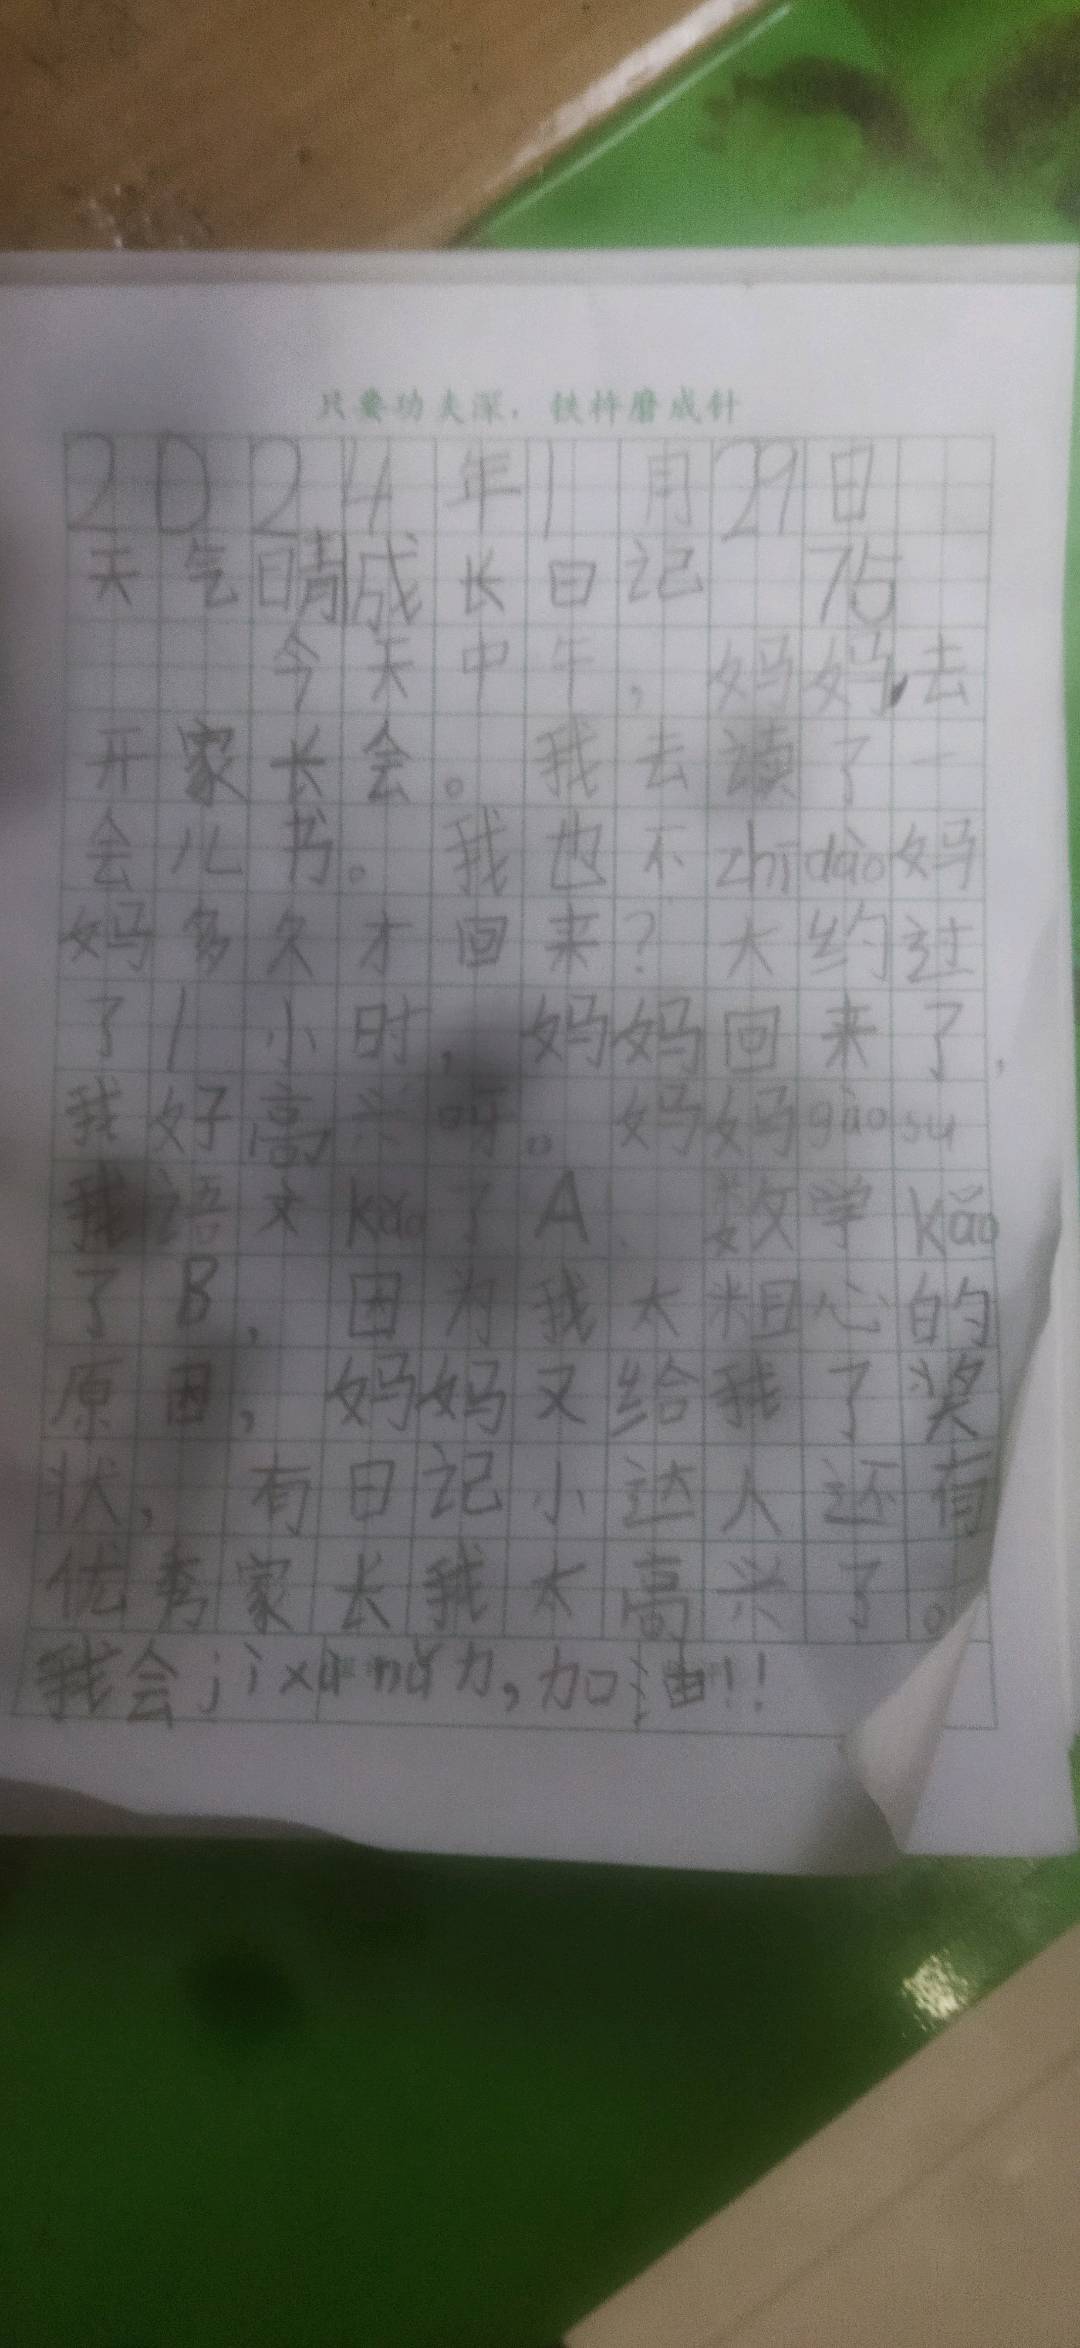 只要功夫深，铁杵磨成针
2024年1月29日
天气晴成长日记 75
今天中午，妈妈去
开家长会。我去读了一
会儿书。我也不zhīdào妈
妈多久才回来？大约过
了1小时，妈妈回来了，
我好高兴呀。妈妈gàosu
我语文kǎo了A、数学kǎo
了B，因为我太粗心的
原因，妈妈又给我了奖
状，有日记小达人还有
优秀家长我太高兴了。
我会jìxù nǔ力，加油!!